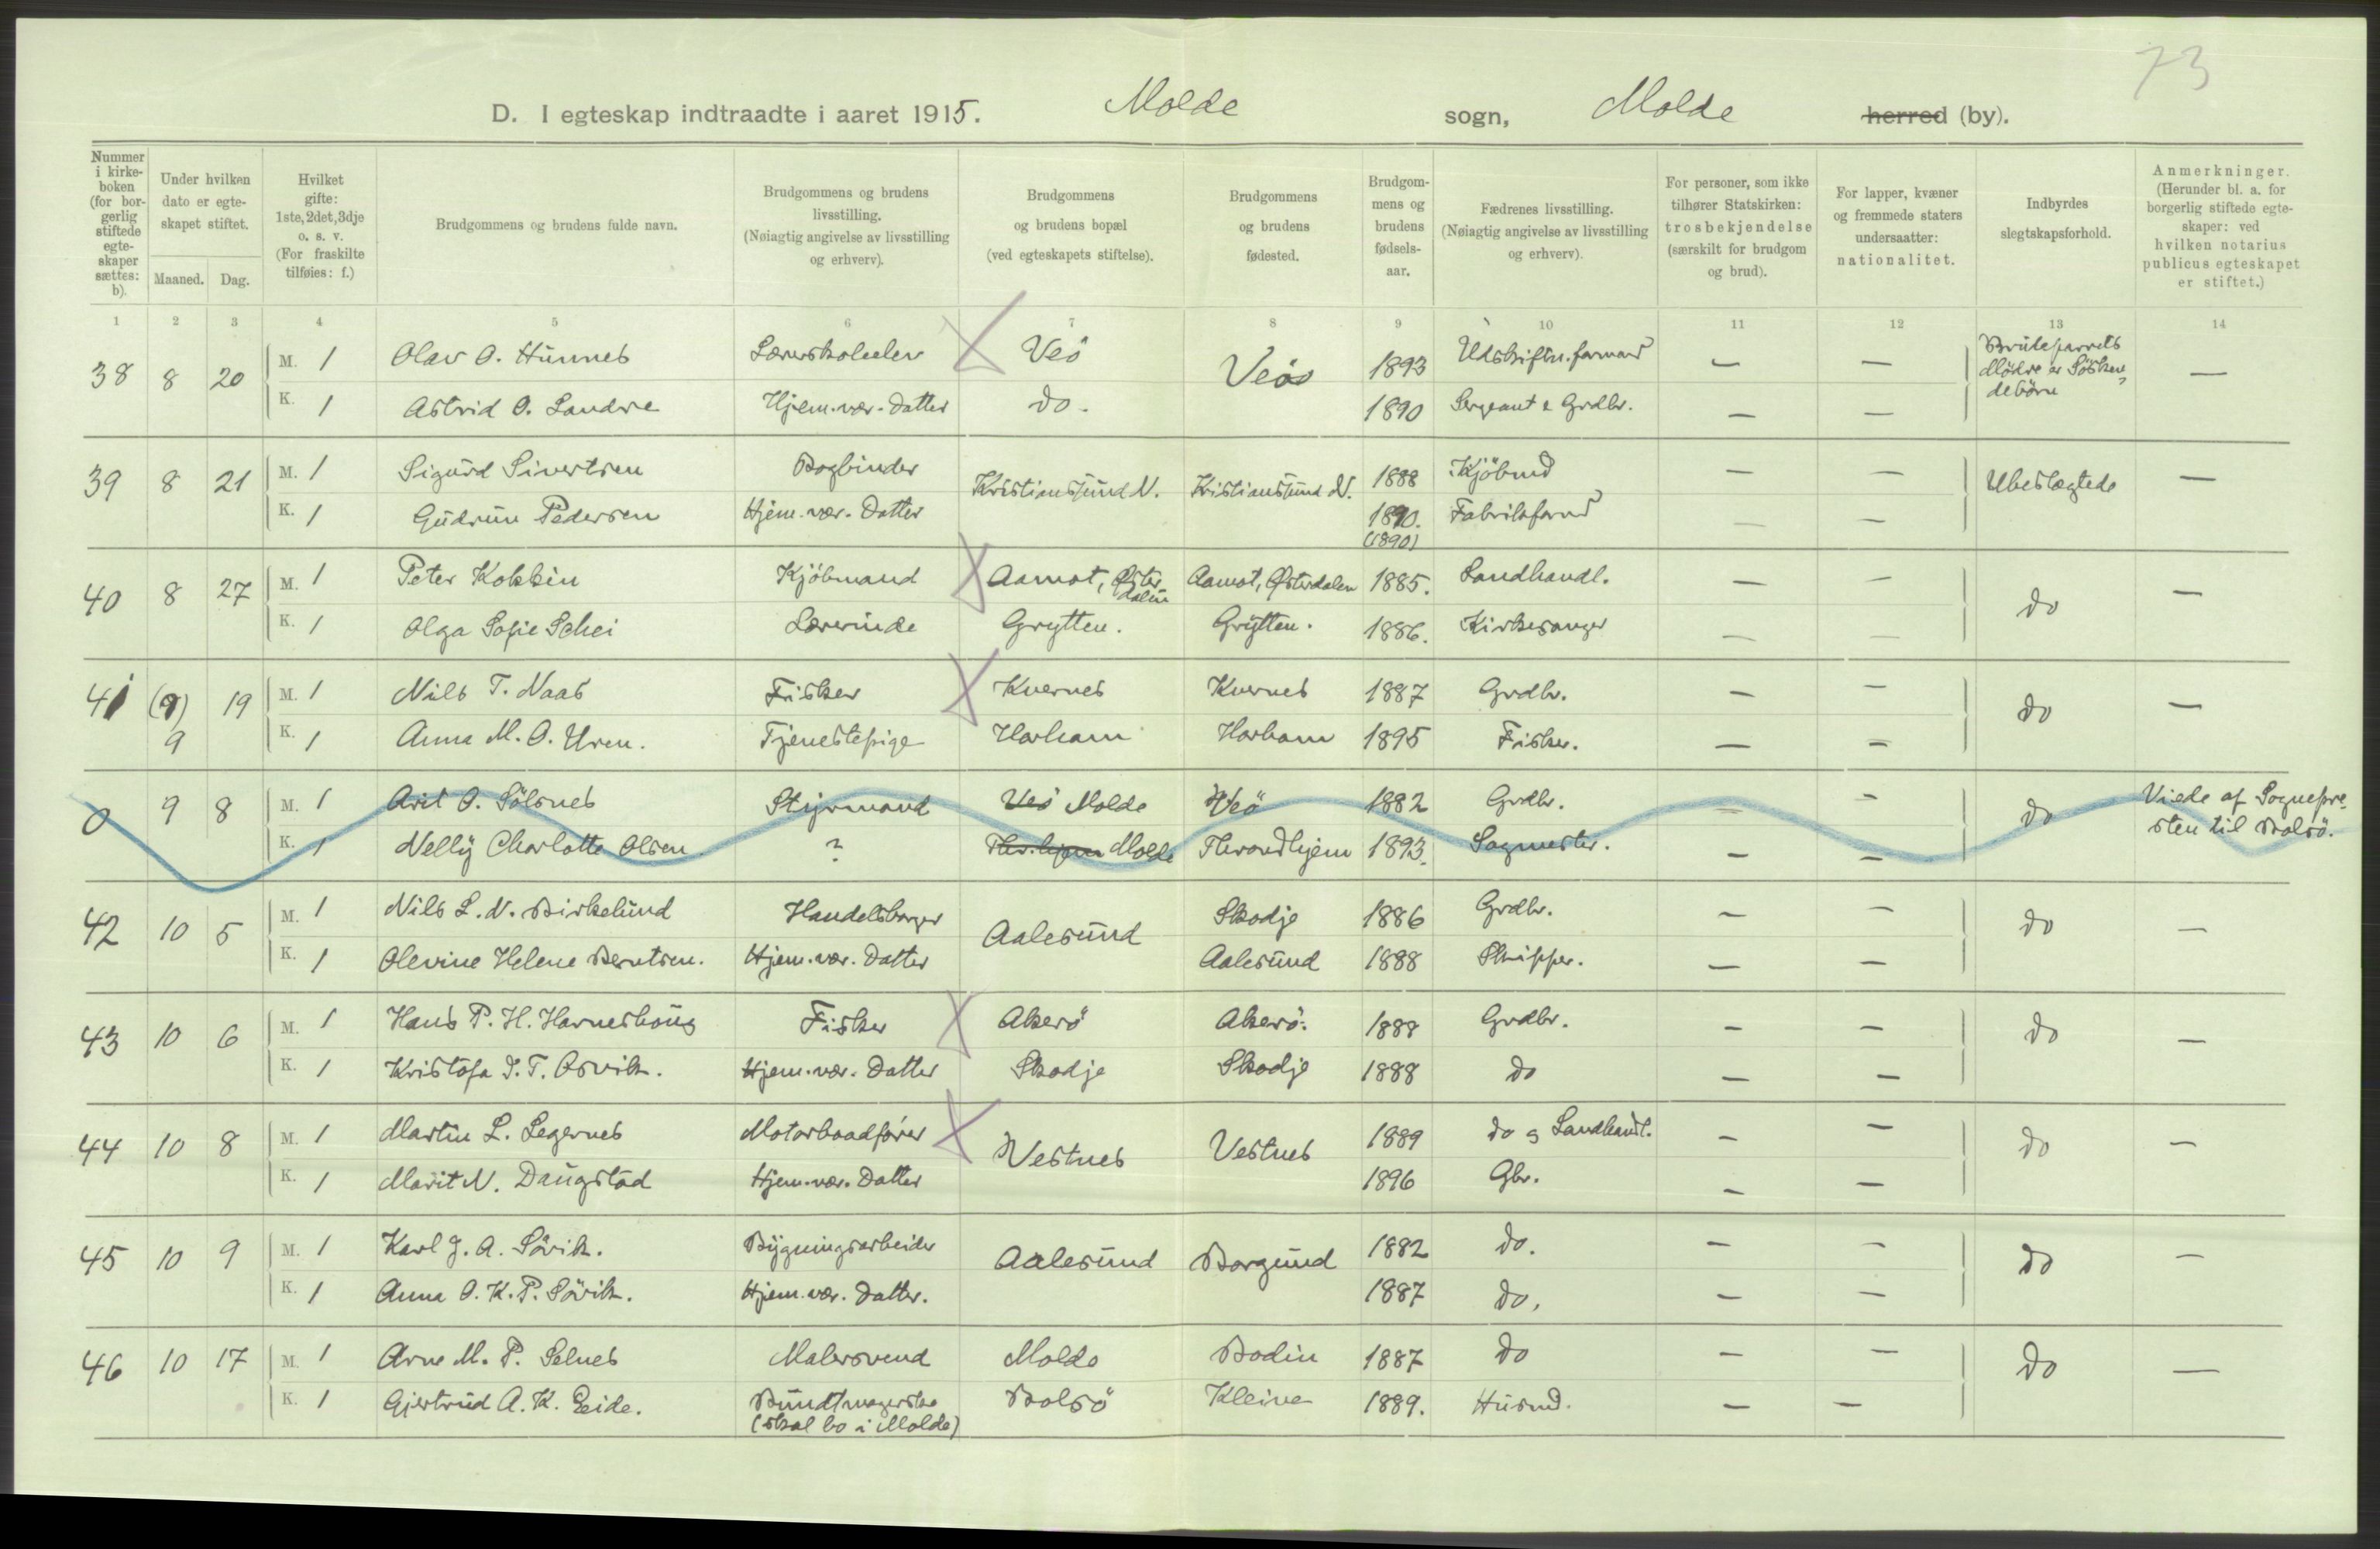 73
D. I egteskap indtraadte i aaret 1915. Molde sogn, Molde herred (by).
Nummer i kirke-boken (for bor-gerlig stiftede egte-skaper sættes: b).
Under hvilken dato er egte-skapet stiftet.
Maaned. Dag.
Hvilket gifte: 1ste, 2det, 3dje o. s. v. (For fraskilte tilføies: f.)
Brudgommens og brudens fulde navn.
Brudgommens og brudens livsstilling. (Nøiagtig angivelse av livsstilling og erhverv).
Brudgommens og brudens bopæl (ved egteskapets stiftelse).
Brudgommens og brudens fødested.
Brudgom-mens og brudens fødsels-aar.
Fædrenes livsstilling. (Nøiagtig angivelse av livsstilling og erhverv).
For personer, som ikke tilhører Statskirken: trosbekjendelse (særskilt for brudgom og brud).
For lapper, kvæner og fremmede staters undersaatter: nationalitet.
Indbyrdes slegtskapsforhold.
Anmerkninger. (Herunder bl. a. for borgerlig stiftede egte-skaper: ved hvilken notarius publicus egteskapet er stiftet.)
1 2 3 4 5 6 7 8 9 10 11 12 13 14
38 8 20 M. 1 Olav O. Hunnes Lærerskoleelev Veö Veö 1893 Udskiftn.formand — — Brudeparrets Mödre er Söskendebörn —
K. 1 Astrid O. Landre Hjem.vær. Datter do. 1890 Sergeant & Grdbr. — —
39 8 21 M. 1 Sigurd Sivertsen Bogbinder Kristianssund N. Kristianssund N. 1888 Kjöbmd — — Ubeslægtede —
K. 1 Gudrun Pedersen Hjem.vær. Datter 1890. (1890) Fabrikformd — —
40 8 27 M. 1 Peter Kokkin Kjöbmand Aamot, Østerdalen Aamot, Østerdalen 1885. Landhandl. — — do —
K. 1 Olga Sofie Schei Lærerinde Grytten. Grytten. 1886. Kirkesanger — —
41 (9) 9 19 M. 1 Nils T. Naas Fisker Kvernes Kvernes 1887 Grdbr. — — do —
K. 1 Anna M. O. Uren. Tjenestepige Harham Harham 1895 Fisker. — —
0 9 8 M. 1 Arit O. Sölsnes Styrmand Veö Molde Veö 1882 Grdbr. — — do Viede af Sognepresten til Bolsö.
K. 1 Nelly Charlotte Olsen ? Thr.hjem Molde Throndhjem 1893. Sagmester. — —
42 10 5 M. 1 Nils L. N. Birkelund Handelsborger Aalesund Skodje 1886 Grdbr. — — do —
K. 1 Olevine Helene Berntsen. Hjem.vær. Datter Aalesund 1888 Skipper. — —
43 10 6 M. 1 Hans P. H. Harneshoug Fisker Akerö Akerö. 1888 Grdbr. — — do —
K. 1 Kristofa I. T. Orvik. Hjem.vær. Datter Skodje Skodje 1888 do — —
44 10 8 M. 1 Martin L. Legernes Motorbaadförer Vestnes Vestnes 1889 do og Landhandl. — — do —
K. 1 Marit N. Daugstad Hjem.vær. Datter 1896 Gbr. — —
45 10 9 M. 1 Karl J. A. Sövik. Bygningsarbeider Aalesund Borgund 1882 do. — — do —
K. 1 Anna O. K. P. Sövik. Hjem.vær. Datter. 1887 do. — —
46 10 17 M. 1 Arne M. P. Selnes Malersvend Molde Bodin 1887 do — — do —
K. 1 Gjertrud A. K. Eide. Bundtmagerske (skal bo i Molde) Bolsö Kleive 1889. Husmd. — —